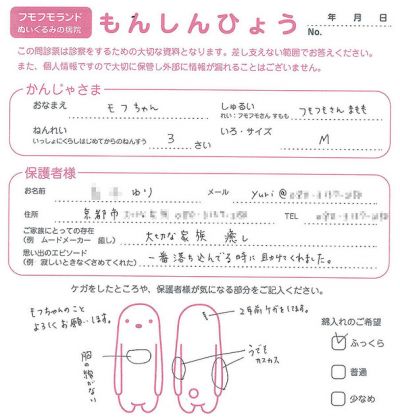 フモフモランド
ぬいぐるみの病院
もんしんひょう
年 月 日
No.
この問診票は診察をするための大切な資料となります。差し支えない範囲でお答えください。
また、個人情報ですので大切に保管し外部に情報が漏れることはございません。
かんじゃさま
おなまえ モフちゃん
しゅるい
れい：フモフモさん すもも
フモフモさん まもも
ねんれい
いっしょにくらしはじめてからのねんすう
3 さい
いろ・サイズ M
保護者様
お名前 ゆり
メール yuri@
住所 京都市
TEL
ご家族にとっての存在
(例 ムードメーカー 癒し)
大切な家族 癒し
思い出のエピソード
(例 寂しいときなぐさめてくれた)
一番落ち込んでる時に助けてくれました。
ケガをしたところや、保護者様が気になる部分をご記入ください。
モフちゃんのこと
よろしくお願いします。
2年前ケガをしてます。
綿入れのご希望
ふっくら
普通
少なめ
うでも
カスカス
の綿がない